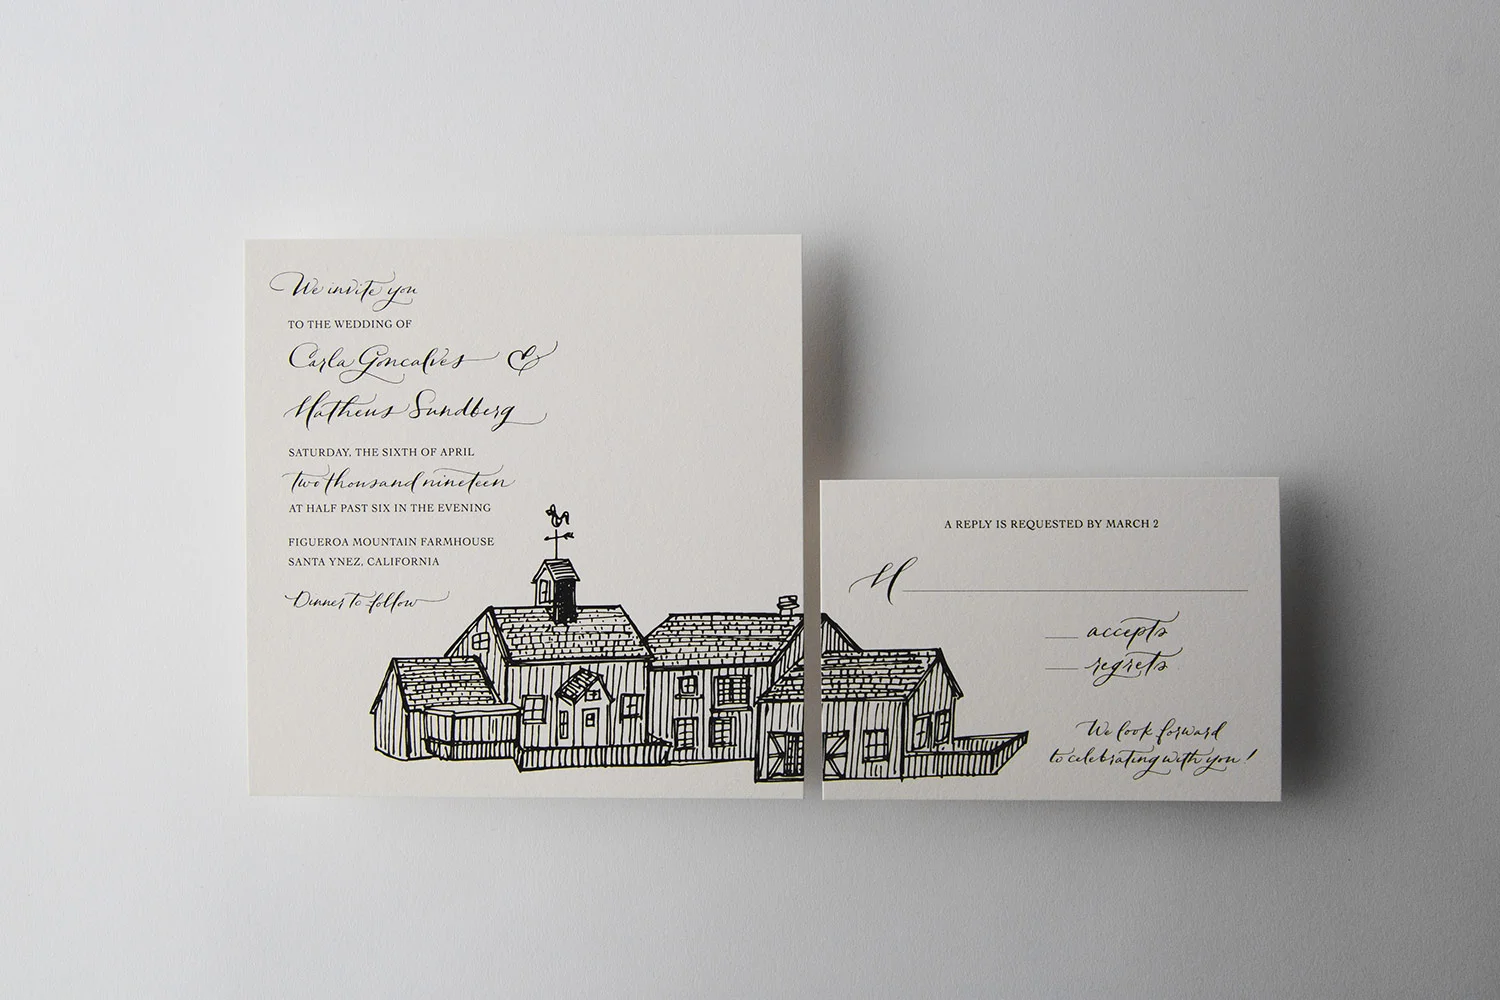 We invite you
TO THE WEDDING OF
Carla Goncalves &
Matheus Sundberg
SATURDAY, THE SIXTH OF APRIL
two thousand nineteen
AT HALF PAST SIX IN THE EVENING
FIGUEROA MOUNTAIN FARMHOUSE
SANTA YNEZ, CALIFORNIA
Dinner to follow
A REPLY IS REQUESTED BY MARCH 2
M
accepts
regrets
We look forward
to celebrating with you!